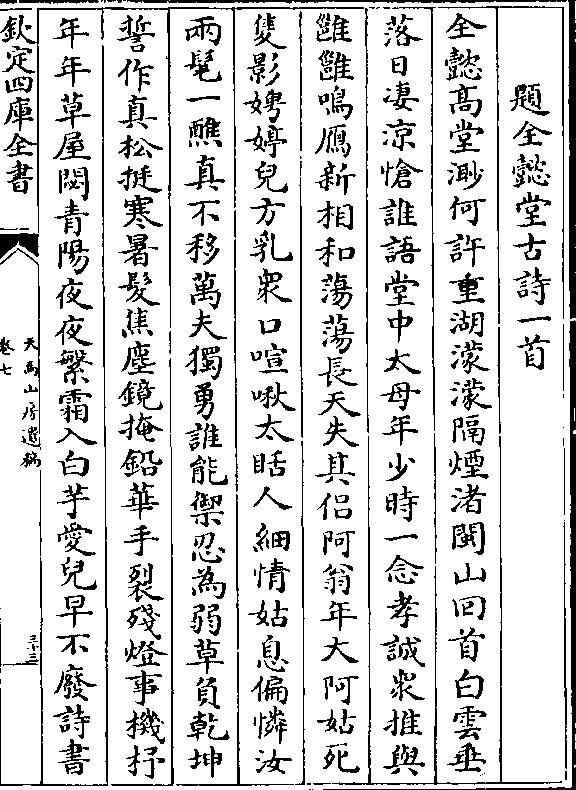 題全懿堂古詩一首
全懿髙堂渺何許重湖濛濛隔煙渚閩山回首白雲垂
落日凄涼愴誰語堂中太母年少時一念孝誠衆推與
雝雝鳴鴈新相和蕩蕩長天失其侣阿翁年大阿姑死
隻影娉婷兒方乳衆口喧啾太聒人細情姑息偏憐汝
兩髦一醮真不移萬夫獨勇誰能禦忍為弱草負乾坤
誓作真松挺寒暑髮焦塵鏡掩鉛華手裂殘燈事機杼
年年草屋閟青陽夜夜繁霜入白苧愛兒早不廢詩書
欽定四庫全書
天馬山房遺稿
卷七
三十三